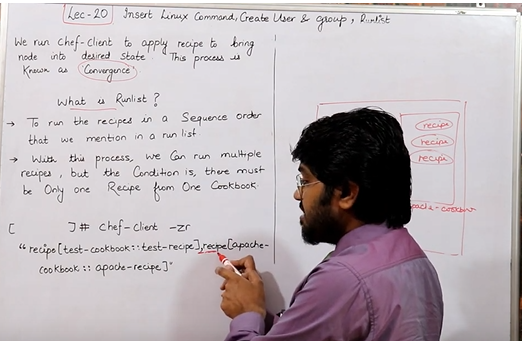 Lec-20 Insert Linux Command, Create User & group, Runlist
We run Chef-Client to apply recipe to bring
node into desired state. This process is
Known as "Convergence"
What is Runlist?
→ To run the recipes in a Sequence order
that we mention in a run list
→ With this process, we Can run multiple
recipes, but the Condition is, there must
be Only one Recipe from One Cookbook.
[ ]# chef-client -zr
"recipe[test-cookbook::test-recipe],recipe[apache-
cookbook::apache-recipe]"
recipe
recipe
recipe